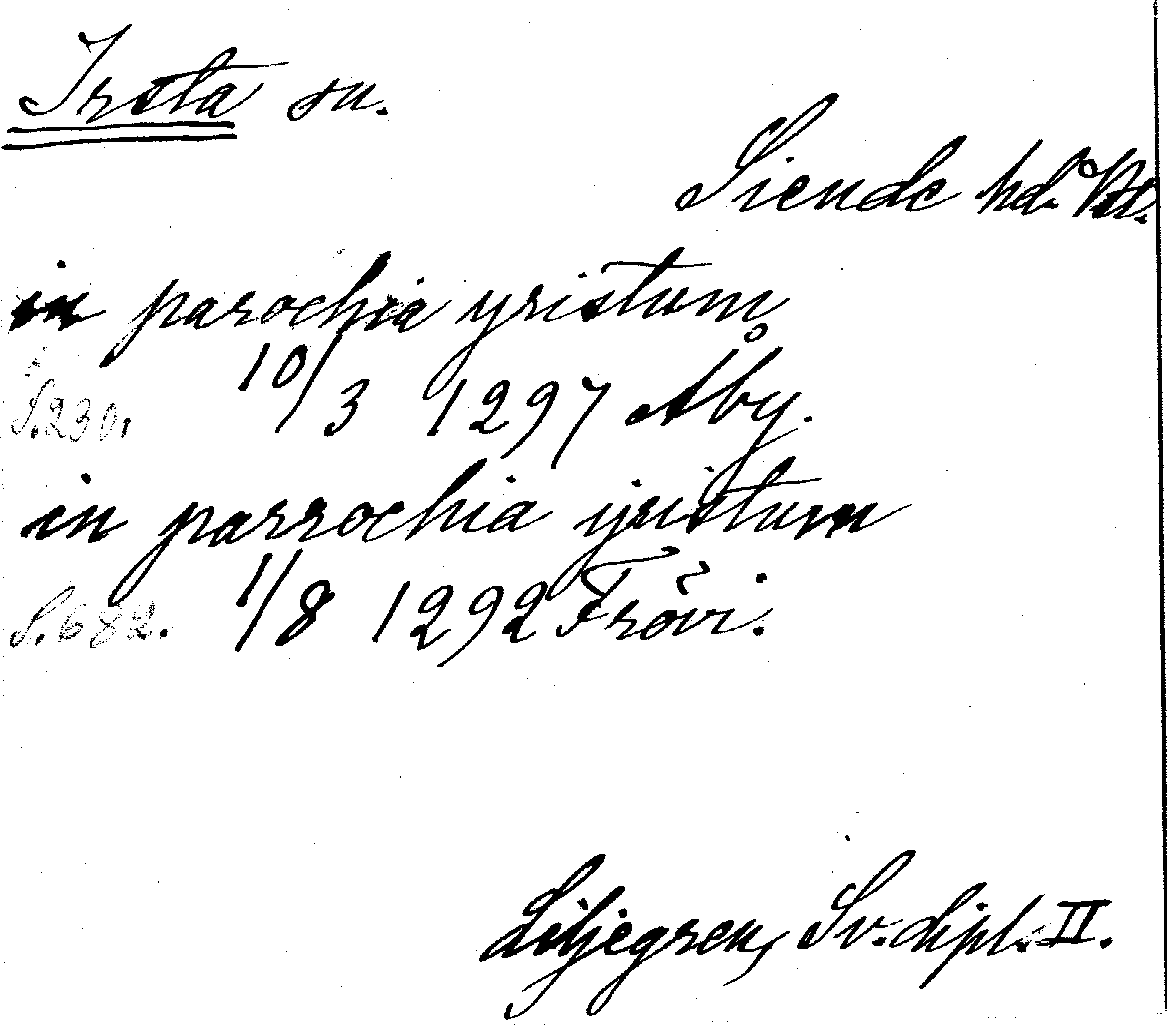 Irsta sn.
Siende hd. Vstm.
in parochia yristum
S. 230. 10/3 1297 Åby.
in parrochia yristum
S. 682. 1/8 1292 Frövi.
Liljegren, Sv. dipl. II.